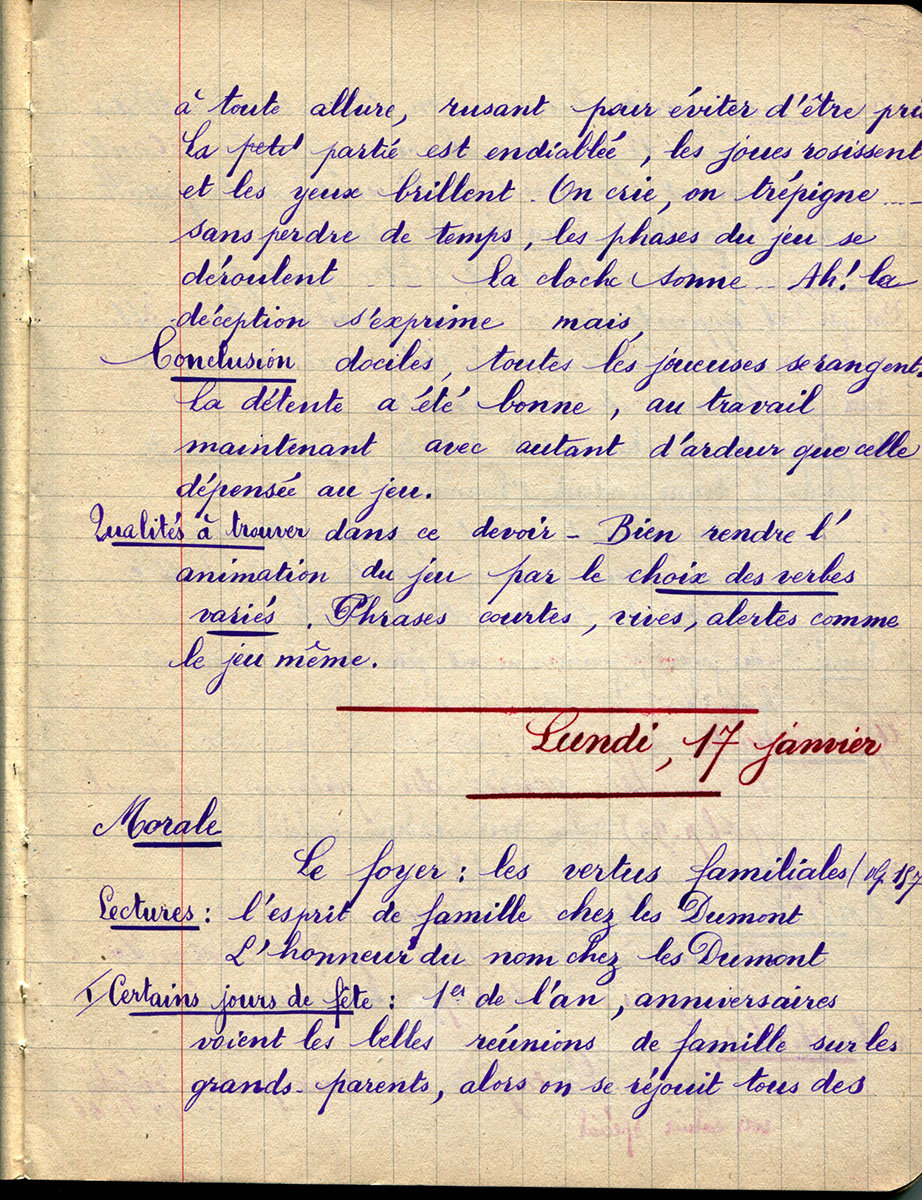 à toute allure, rusant pour éviter d'être pris
La petit partie est endiablée, les joues rosissent
et les yeux brillent. On crie, on trépigne ....
sans perdre de temps, les phases du jeu se
déroulent .... La cloche sonne... Ah! la
déception s'exprime mais,
Conclusion dociles, toutes les joueuses se rangent.
La détente a été bonne, au travail
maintenant avec autant d'ardeur que celle
dépensée au jeu.
Qualités à trouver dans ce devoir - Bien rendre l'
animation du jeu par le choix des verbes
variés. Phrases courtes, vives, alertes comme
le jeu même.
Lundi, 17 janvier
Morale
Le foyer: les vertus familiales (
Lectures: l'esprit de famille chez les Dumont
L'honneur du nom chez les Dumont
I Certains jours de fête: 1er de l'an, anniversaires
voient les belles réunions de famille sur les
grands-parents, alors on se réjouit tous des